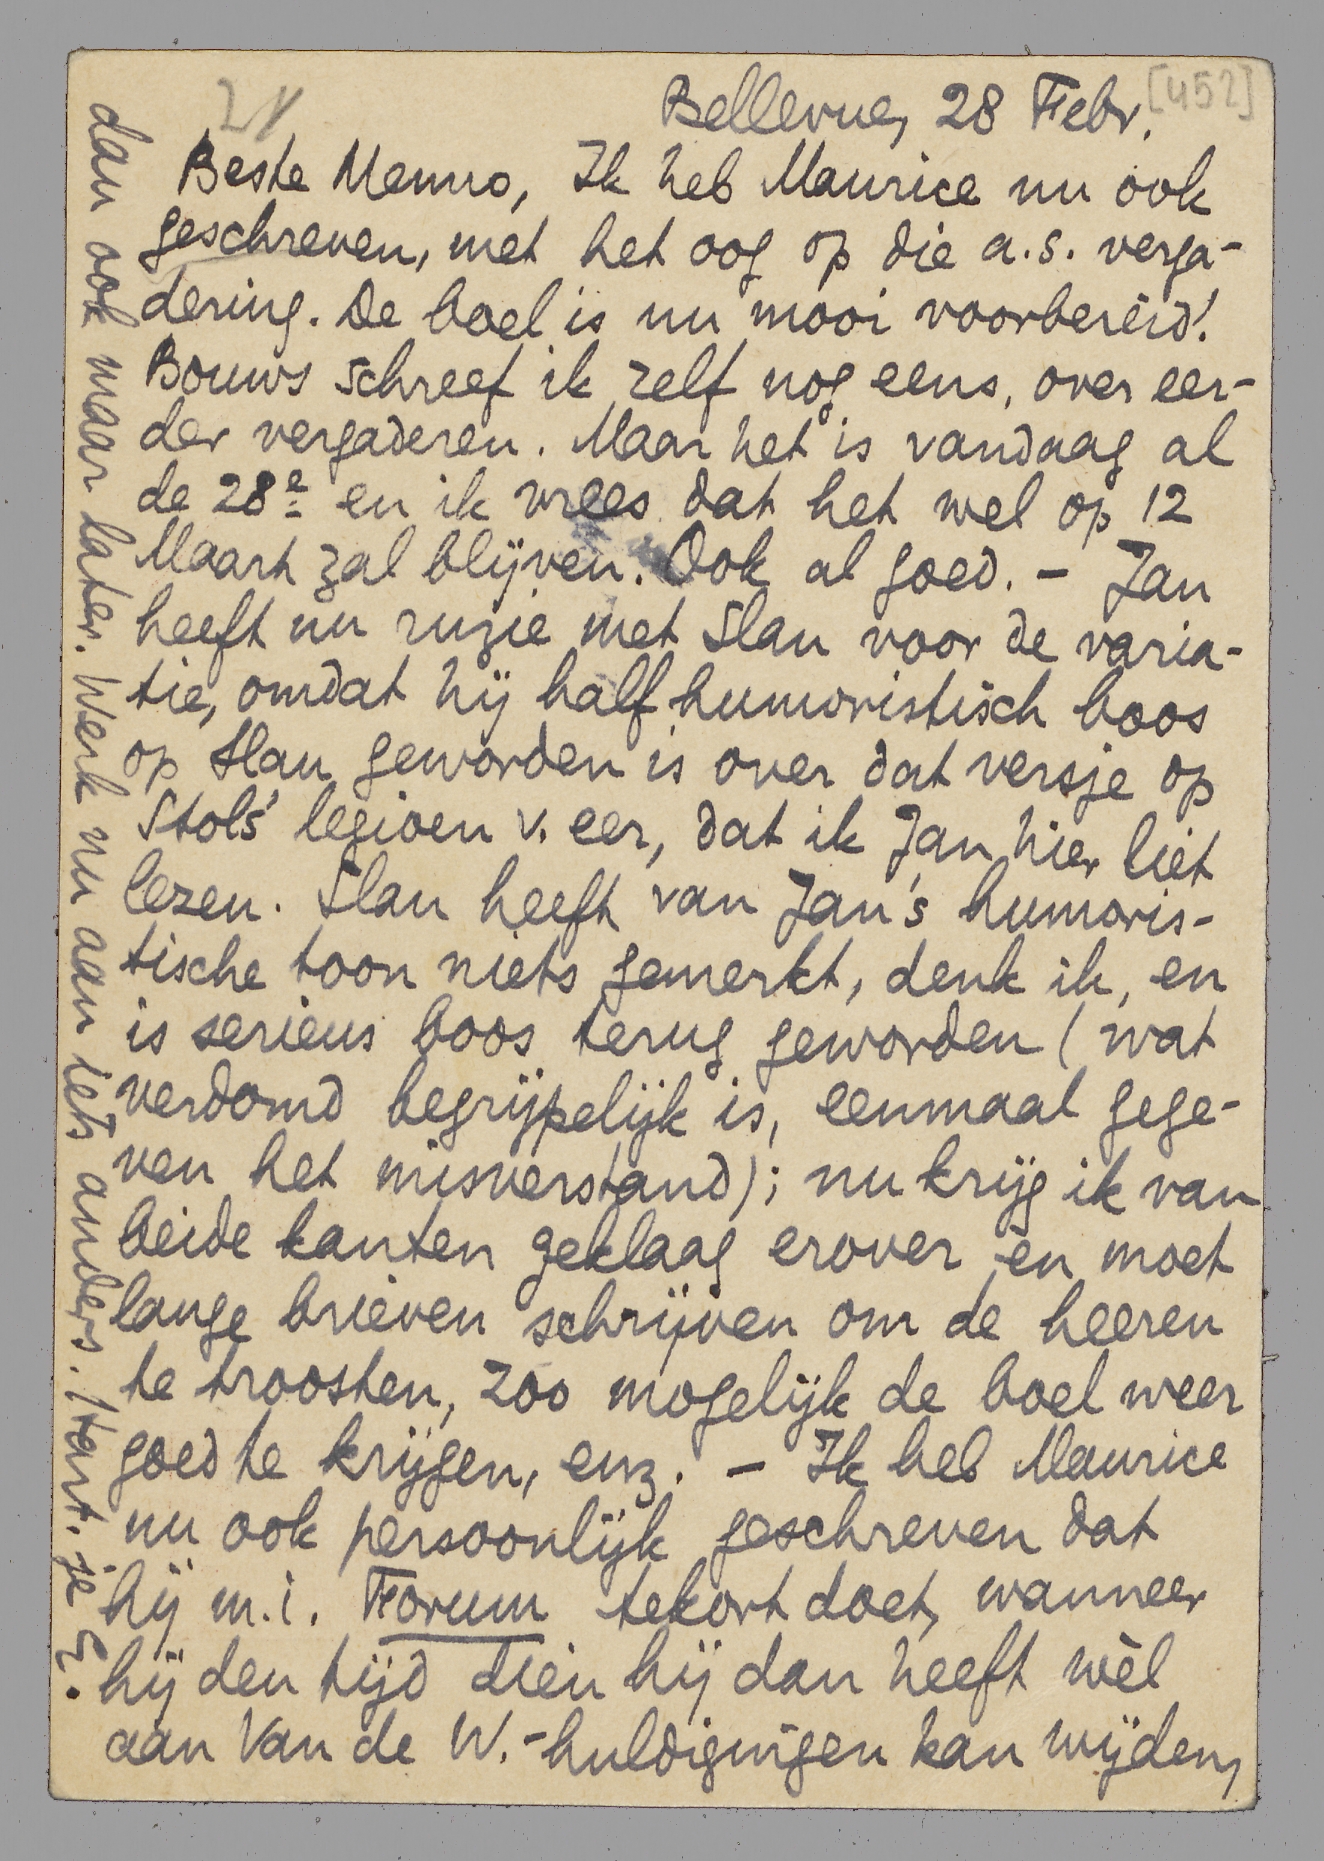 [452]
21
Bellevue, 28 Febr.
Beste Menno, Ik heb Maurice nu ook
geschreven, met het oog op die a.s. verga-
dering. De boel is nu mooi voorbereid!
Bouws schreef ik zelf nog eens, over eer-
der vergaderen. Maar het is vandaag al
de 28e en ik vrees dat het wel op 12
Maart zal blijven. Ook al goed. – Jan
heeft nu ruzie met Slau voor de varia-
tie, omdat hij half humoristisch boos
op Slau geworden is over dat versje op
Stols' legioen v. eer, dat ik Jan hier liet
lezen. Slau heeft van Jan's humoris-
tische toon niets gemerkt, denk ik, en
is serieus boos terug geworden (wat
verdomd begrijpelijk is, eenmaal gege-
ven het misverstand); nu krijg ik van
beide kanten geklaag erover en moet
lange brieven schrijven om de heeren
te troosten, zoo mogelijk de boel weer
goed te krijgen, enz. – Ik heb Maurice
nu ook persoonlijk geschreven dat
hij m.i. Forum tekort doet, wanneer
hij den tijd dien hij dan heeft wèl
aan Van de W.-huldigingen kan wijden,
dan ook maar later. Werk nu aan iets anders. Hart. je E.